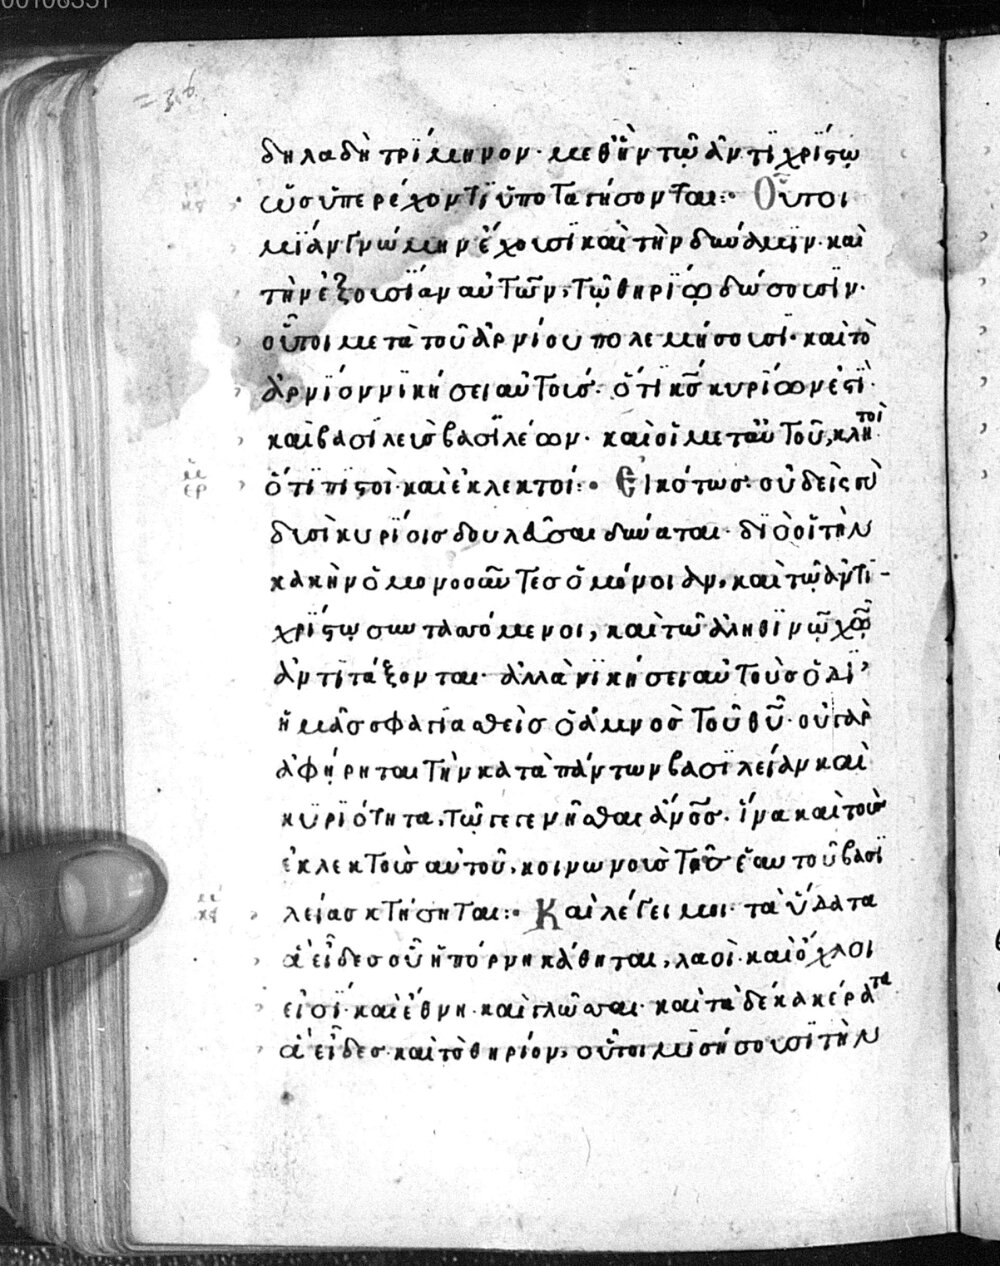 00100351
δηλαδὴ τρϊμηνον· μεθ' ἣν τῶ ἀντϊχρϊστω
ὡσ ὑπερέχοντϊ ὑποταγήσονται:· Οὗτοι
μϊὰν γνώμην ἔχουσϊ καὶ τὴν δύναμϊν· καὶ
τὴν ἐξουσϊαν αὐτῶν, τῶ θηρϊω δώσουσϊν·
οὗτοι μετὰ τοῦ ἀρνίου πολεμήσουσϊ· καὶ τὸ
ἀρνϊον νϊκήσει αὐτούσ· ὅτϊ κσ κυρϊων ἐστϊ·
καὶ βασϊλεὺσ βασϊλέων· καὶ οἱ μετ' αὐτοῦ, κλητοὶ
ὅτϊ πϊστοὶ· καὶ ἐκλεκτοί:· Εἰκότωσ· οὐδεὶς γὰρ
δυσὶ κυρϊοισ δουλεῦσαι δύναται· δϊὸ οἱ τὴν
κακὴν ὁμονοοῦντεσ ὁμόνοιαν, καὶ τῶ ἀντϊ-
χρϊστω συντασσόμενοι, καὶ τῶ ἀληθϊνῶ χω
ἀντϊτάξονται· ἀλλὰ νϊκήσει αὐτοὺσ ὁ δϊ'
ἡμᾶσ σφαγϊασθεὶσ ὁ ἀμνὸσ τοῦ θυ· οὐ γὰρ
ἀφήρηται τὴν κατὰ πάντων βασϊλείαν καὶ
κυρϊότητα, τῶ γεγενῆσθαι ἄνοσ· ἵνα καὶ τοὺσ
ἐκλεκτοὺσ αὐτοῦ, κοινωνοὺσ τῆσ ἑαυτοῦ βασϊ
λείασ κτήσηται:· Καὶ λέγει μοι· τὰ ὕδατα
ἃ εἶδεσ οὗ ἡ πόρνη κάθηται, λαοὶ· καὶ ὄχλοι
εἰσϊ· καὶ ἔθνη· καὶ γλῶσσαι· καὶ τὰ δέκα κέρατα
ἃ εἶδεσ· καὶ τὸ θηρίον, οὗτοι μϊσήσουσϊ τὴν